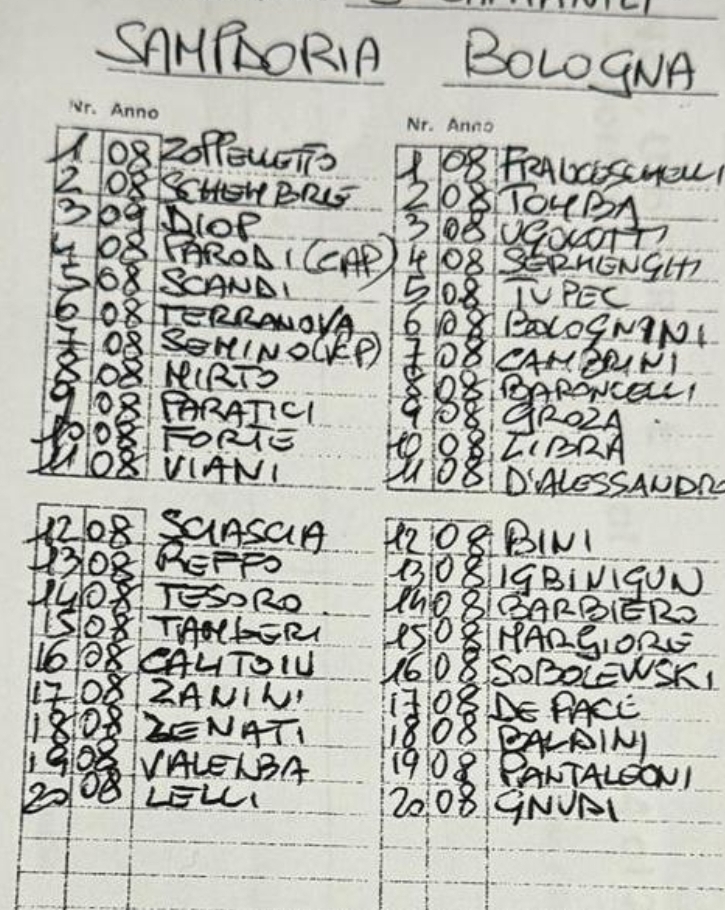 SAMPDORIA
Nr. Anno
1 08 ZOPPELLETTO
2 08 SCHEMBRIE
3 09 DIOP
4 08 PARODI (CAP)
5 08 SCANDI
6 08 TERRANOVA
7 08 SEMINO (VCP)
8 08 MIRTO
9 08 PARATICI
10 08 FORTE
11 08 VIANI
12 08 SCIASCIA
13 08 REFFO
14 08 TESORO
15 08 TAMBERI
16 08
17 08 ZANINI
18 08 ZENATI
19 08
20 08 LELLI
BOLOGNA
Nr. Anno
1 08 FRANCESCHELLI
2 08 TOMBA
3 08 UGOLOTTI
4 08 SERMENGHI
5 08 TUPEC
6 08 BOLOGNINI
7 08 CAMBRINI
8 08 BARONCELLI
9 08 GROZA
10 08 LIBRA
11 08 D'ALESSANDRO
12 08 BINI
13 08 IGBINIGUN
14 08 BARBIERO
15 08 MARGIORE
16 08 SOBOLEWSKI
17 08 DE PACE
18 08 BALDINI
19 08 PANTALEONI
20 08 GNUDI